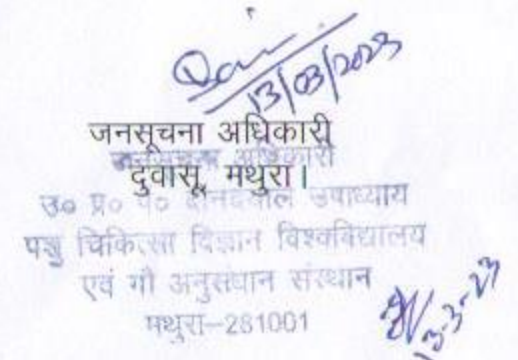 13/03/2023
जनसूचना अधिकारी
जनसूचना अधिकारी
दुवासू, मथुरा।
उ० प्र० पं० दीनदयाल उपाध्याय
पशु चिकित्सा विज्ञान विश्वविद्यालय
एवं गौ अनुसंधान संस्थान
मथुरा-281001
13-3-23